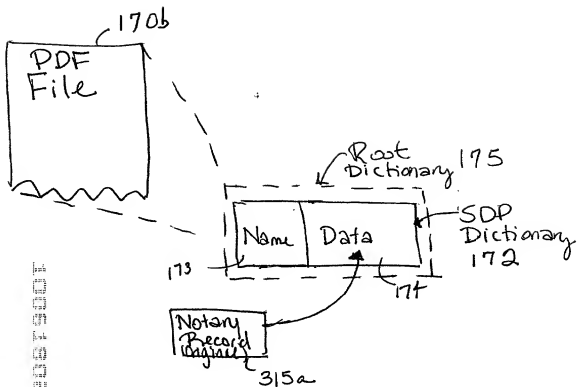 170b
PDF
File
Root
Dictionary 175
Name Data
SDP
Dictionary
172
173
174
Notary
Record
315a